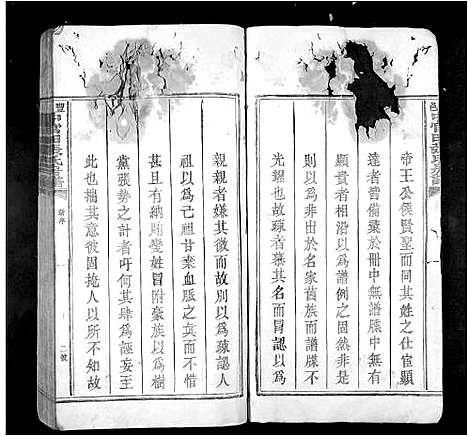 帝王公侯賢聖而同其姓之仕宦顯
達者皆備彙於冊中無譜牒中無
顯貴者相沿以為譜例之固然非是
則以為非出於名家舊族而譜牒不
光耀也故疎者慕其名而冒認以為
親親者嫌其微而故別以為疎認人
祖以為己祖甘棄血脈之真而不惜
甚且有納賄變姓冒附豪族以為樹
黨張勢之計者吁何其肆為誣妄至
此也揣其意彼固掩人以所不知故
新序
二號